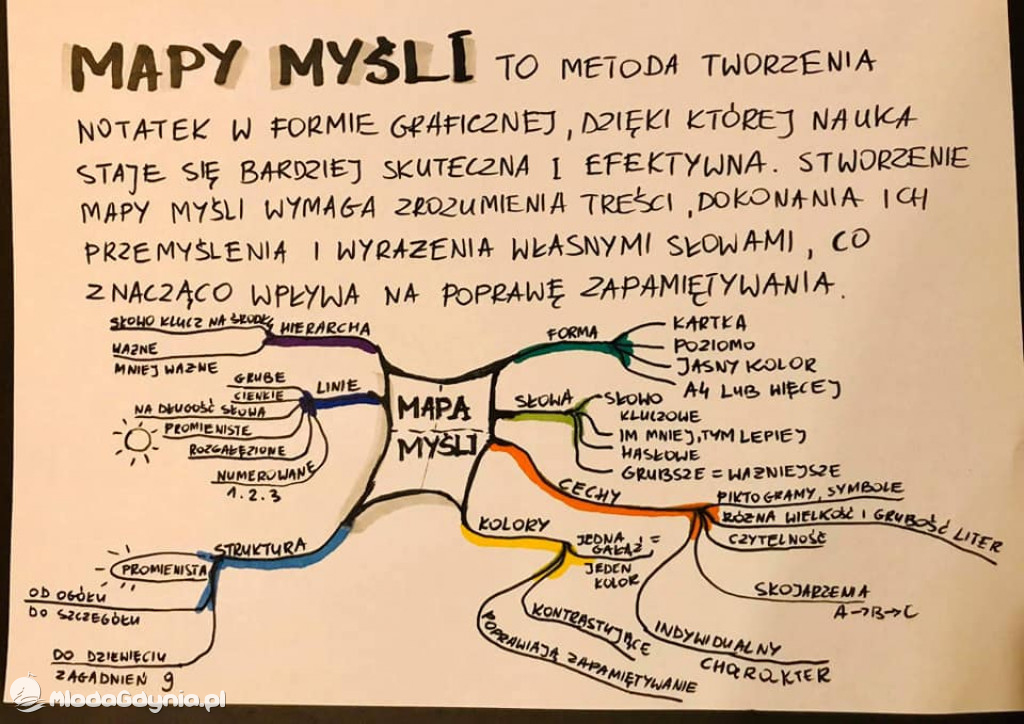 MAPY MYŚLI TO METODA TWORZENIA
NOTATEK W FORMIE GRAFICZNEJ, DZIĘKI KTÓREJ NAUKA
STAJE SIĘ BARDZIEJ SKUTECZNA I EFEKTYWNA. STWORZENIE
MAPY MYŚLI WYMAGA ZROZUMIENIA TREŚCI, DOKONANIA ICH
PRZEMYŚLENIA I WYRAŻENIA WŁASNYMI SŁOWAMI, CO
ZNACZĄCO WPŁYWA NA POPRAWĘ ZAPAMIĘTYWANIA.
MAPA
MYŚLI
HIERARCHA
SŁOWO KLUCZ NA ŚRODK
WAŻNE
MNIEJ WAŻNE
LINIE
GRUBE
CIENKIE
NA DŁUGOŚĆ SŁOWA
PROMIENISTE
ROZGAŁĘZIONE
NUMEROWANE
1.2.3
STRUKTURA
PROMIENISTA
OD OGÓŁU
DO SZCZEGÓŁU
DO DZIEWIĘCIU
ZAGADNIEŃ 9
FORMA
KARTKA
POZIOMO
JASNY KOLOR
A4 LUB WIĘCEJ
SŁOWA
SŁOWO
KLUCZOWE
IM MNIEJ, TYM LEPIEJ
HASŁOWE
GRUBSZE = WAŻNIEJSZE
CECHY
PIKTOGRAMY, SYMBOLE
RÓŻNA WIELKOŚĆ I GRUBOŚĆ LITER
CZYTELNOŚĆ
SKOJARZENIA
A→B→C
INDYWIDUALNY
CHARAKTER
KOLORY
JEDNA
GAŁĄŹ =
JEDEN
KOLOR
KONTRASTUJĄCE
POPRAWIAJĄ ZAPAMIĘTYWANIE
MlodaGdynia.pl